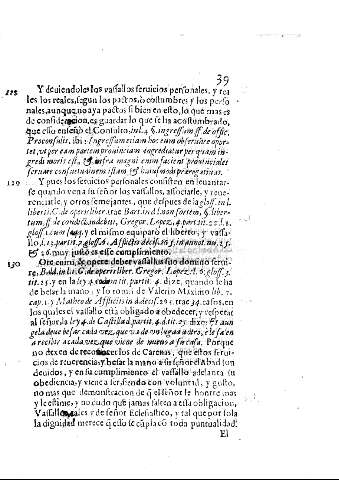 39
128 Y deuiendoles los vassallos seruicios personales, y rea
les los reales, segun los pactos, ò costumbres y los perso
nales, aunque no aya pactos si bien en esto, lo que mas es
de consideracion, es guardar lo que se ha acostumbrado,
que esso enseñò el Consulto, in l. 4. §. ingressum ff. de offic.
Proconsulis, ibi: Ingressum etiam hoc eum obseruare opor-
tet, vt per eam partem prouinciam ingrediatur per quam in-
gredi moris est, & infra magni enim facient prouinciales
seruari consuetudinem istam & huiusmodi prærogatinas.
129 Y pues los seruicios personales consisten en leuantar-
se quando vena su señor los vassallos, assistirle, y reue-
renciarle, y otros semejantes, que despues de la gloss. in l.
liberti C. de operis libert. trae Bart. in d. l.
gloss. 1. con y el mismo equiparò el liberto, y vassa-
llo, l. 13. partit. 7. gloss. 6. Afflictis decis. 265. in annot. nu. 25.
& 26. muy justo es este cumplimiento.
130 Que enim, & opere deber vassallus suo domino serui-
re, Bald. in l. 1. C. de operis libert. Gregor. Lopez, d. 6. gloss. 3.
tit. 25. y en la ley 4. tit. partit. 4. dize, quando le ha
de besar la mano; y lo tomò de Valerio Maximo lib. 7.
cap. 1. y Matheo de Afflictis in d. decis. 265. trae 34. casos, en
los quales el vassallo està obligado à obedecer, y respetar
al señor, la ley 4. de Castilla partit. 4. tit. 25. dize: Et aun
gela deue besar cada vez, que va de vn lugar a otro, è le sale
a recibir a cada vez, que viene de nueuo a su casa. Porque
no dexen de reconocer los de Carenas, que estos serui-
cios de reuerencia, y besar la mano a su señor el Abad son
deuidos, y en su cumplimiento el vassallo adelanta su
obediencia, y viene a ser, siendo con voluntad, y gusto,
no mas que demostracion de q̃ el señor le honre mas
y le estime, y no dudo què jamàs falten a esta obligacion,
Vassallos tales y de señor Eclesiastico, y tal que por sola
la dignidad merece q̃ esso se cũpla cõ toda puntualidad.
El